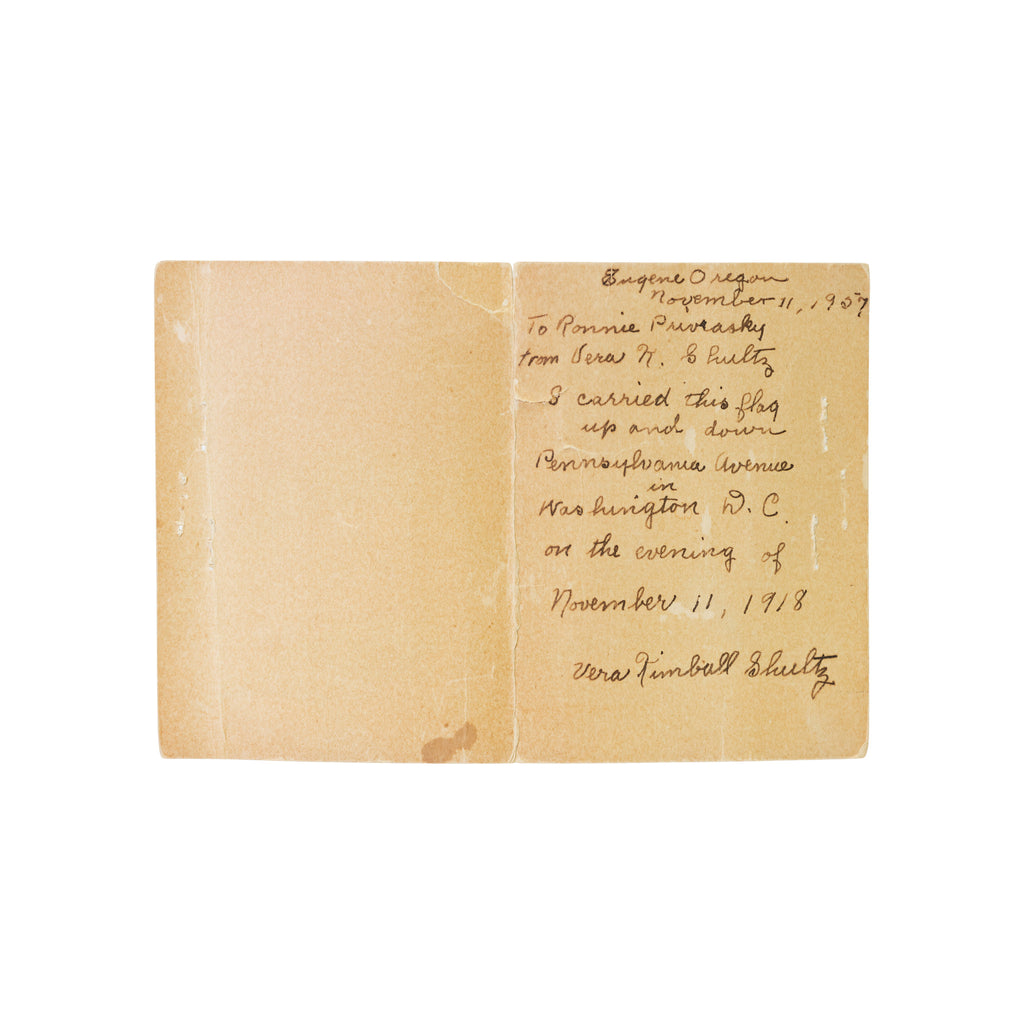 Eugene Oregon
November 11, 1957
To Ronnie
from Vera K. Shultz
I carried this flag
up and down
Pennsylvania Avenue
in
Washington D. C.
on the evening of
November 11, 1918
Vera Kimball Shultz